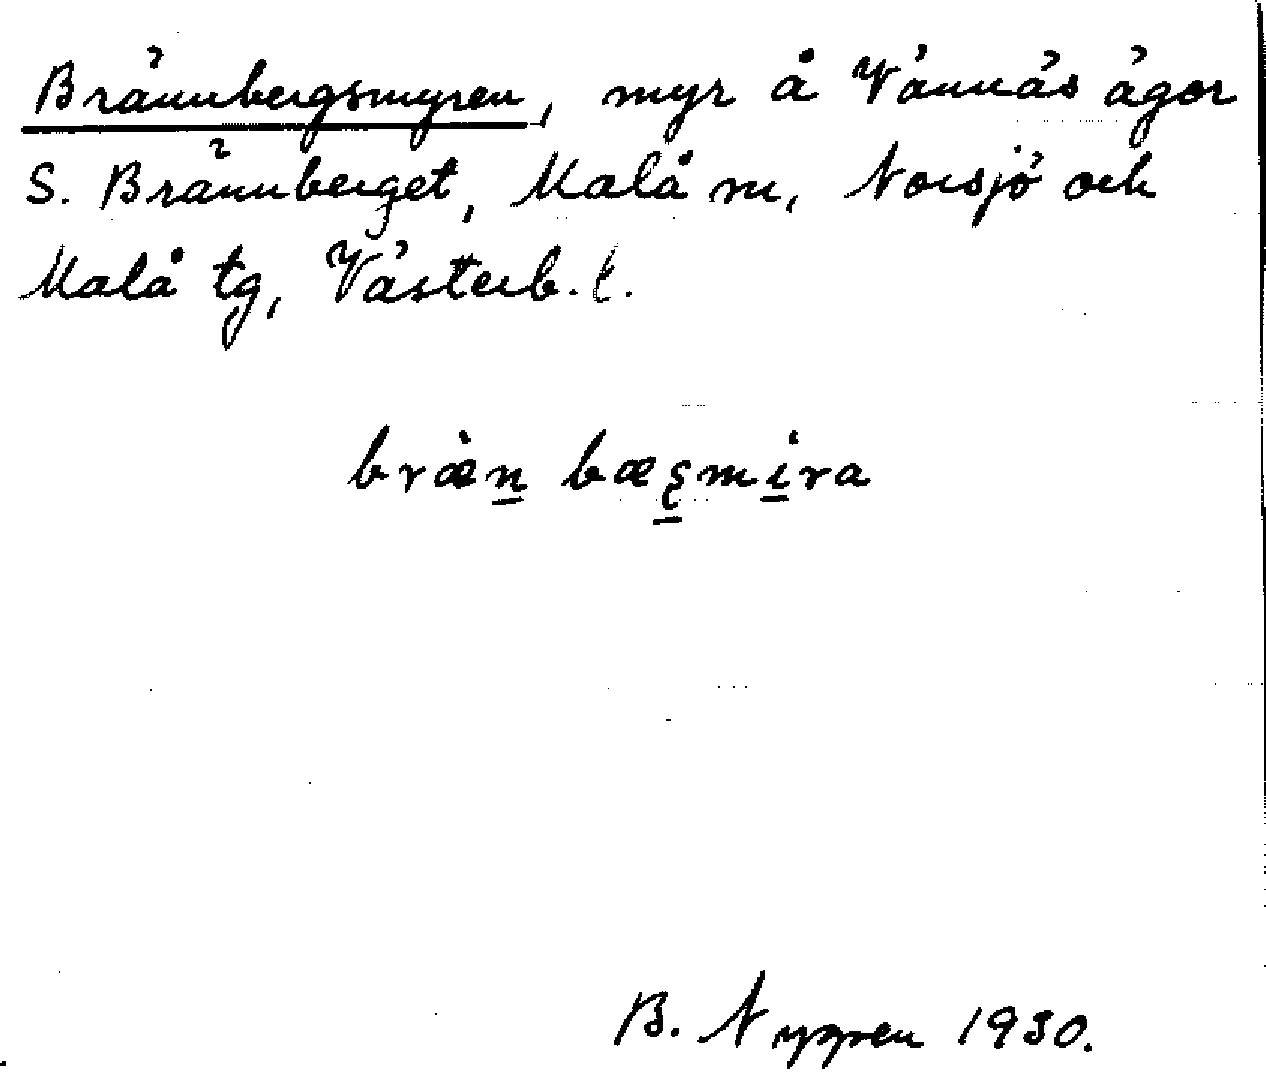 Brännbergsmyren, myr å Vännäs ägor
S. Brännberget, Malå sn, Norsjö och
Malå tg, Västerb. l.
bræ̀n̲ bæʂ̲mi̲ra
B. Nygren 1930.